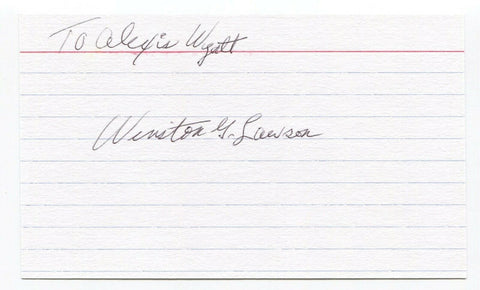 To Alexis Wyatt
Winston G. Lawson